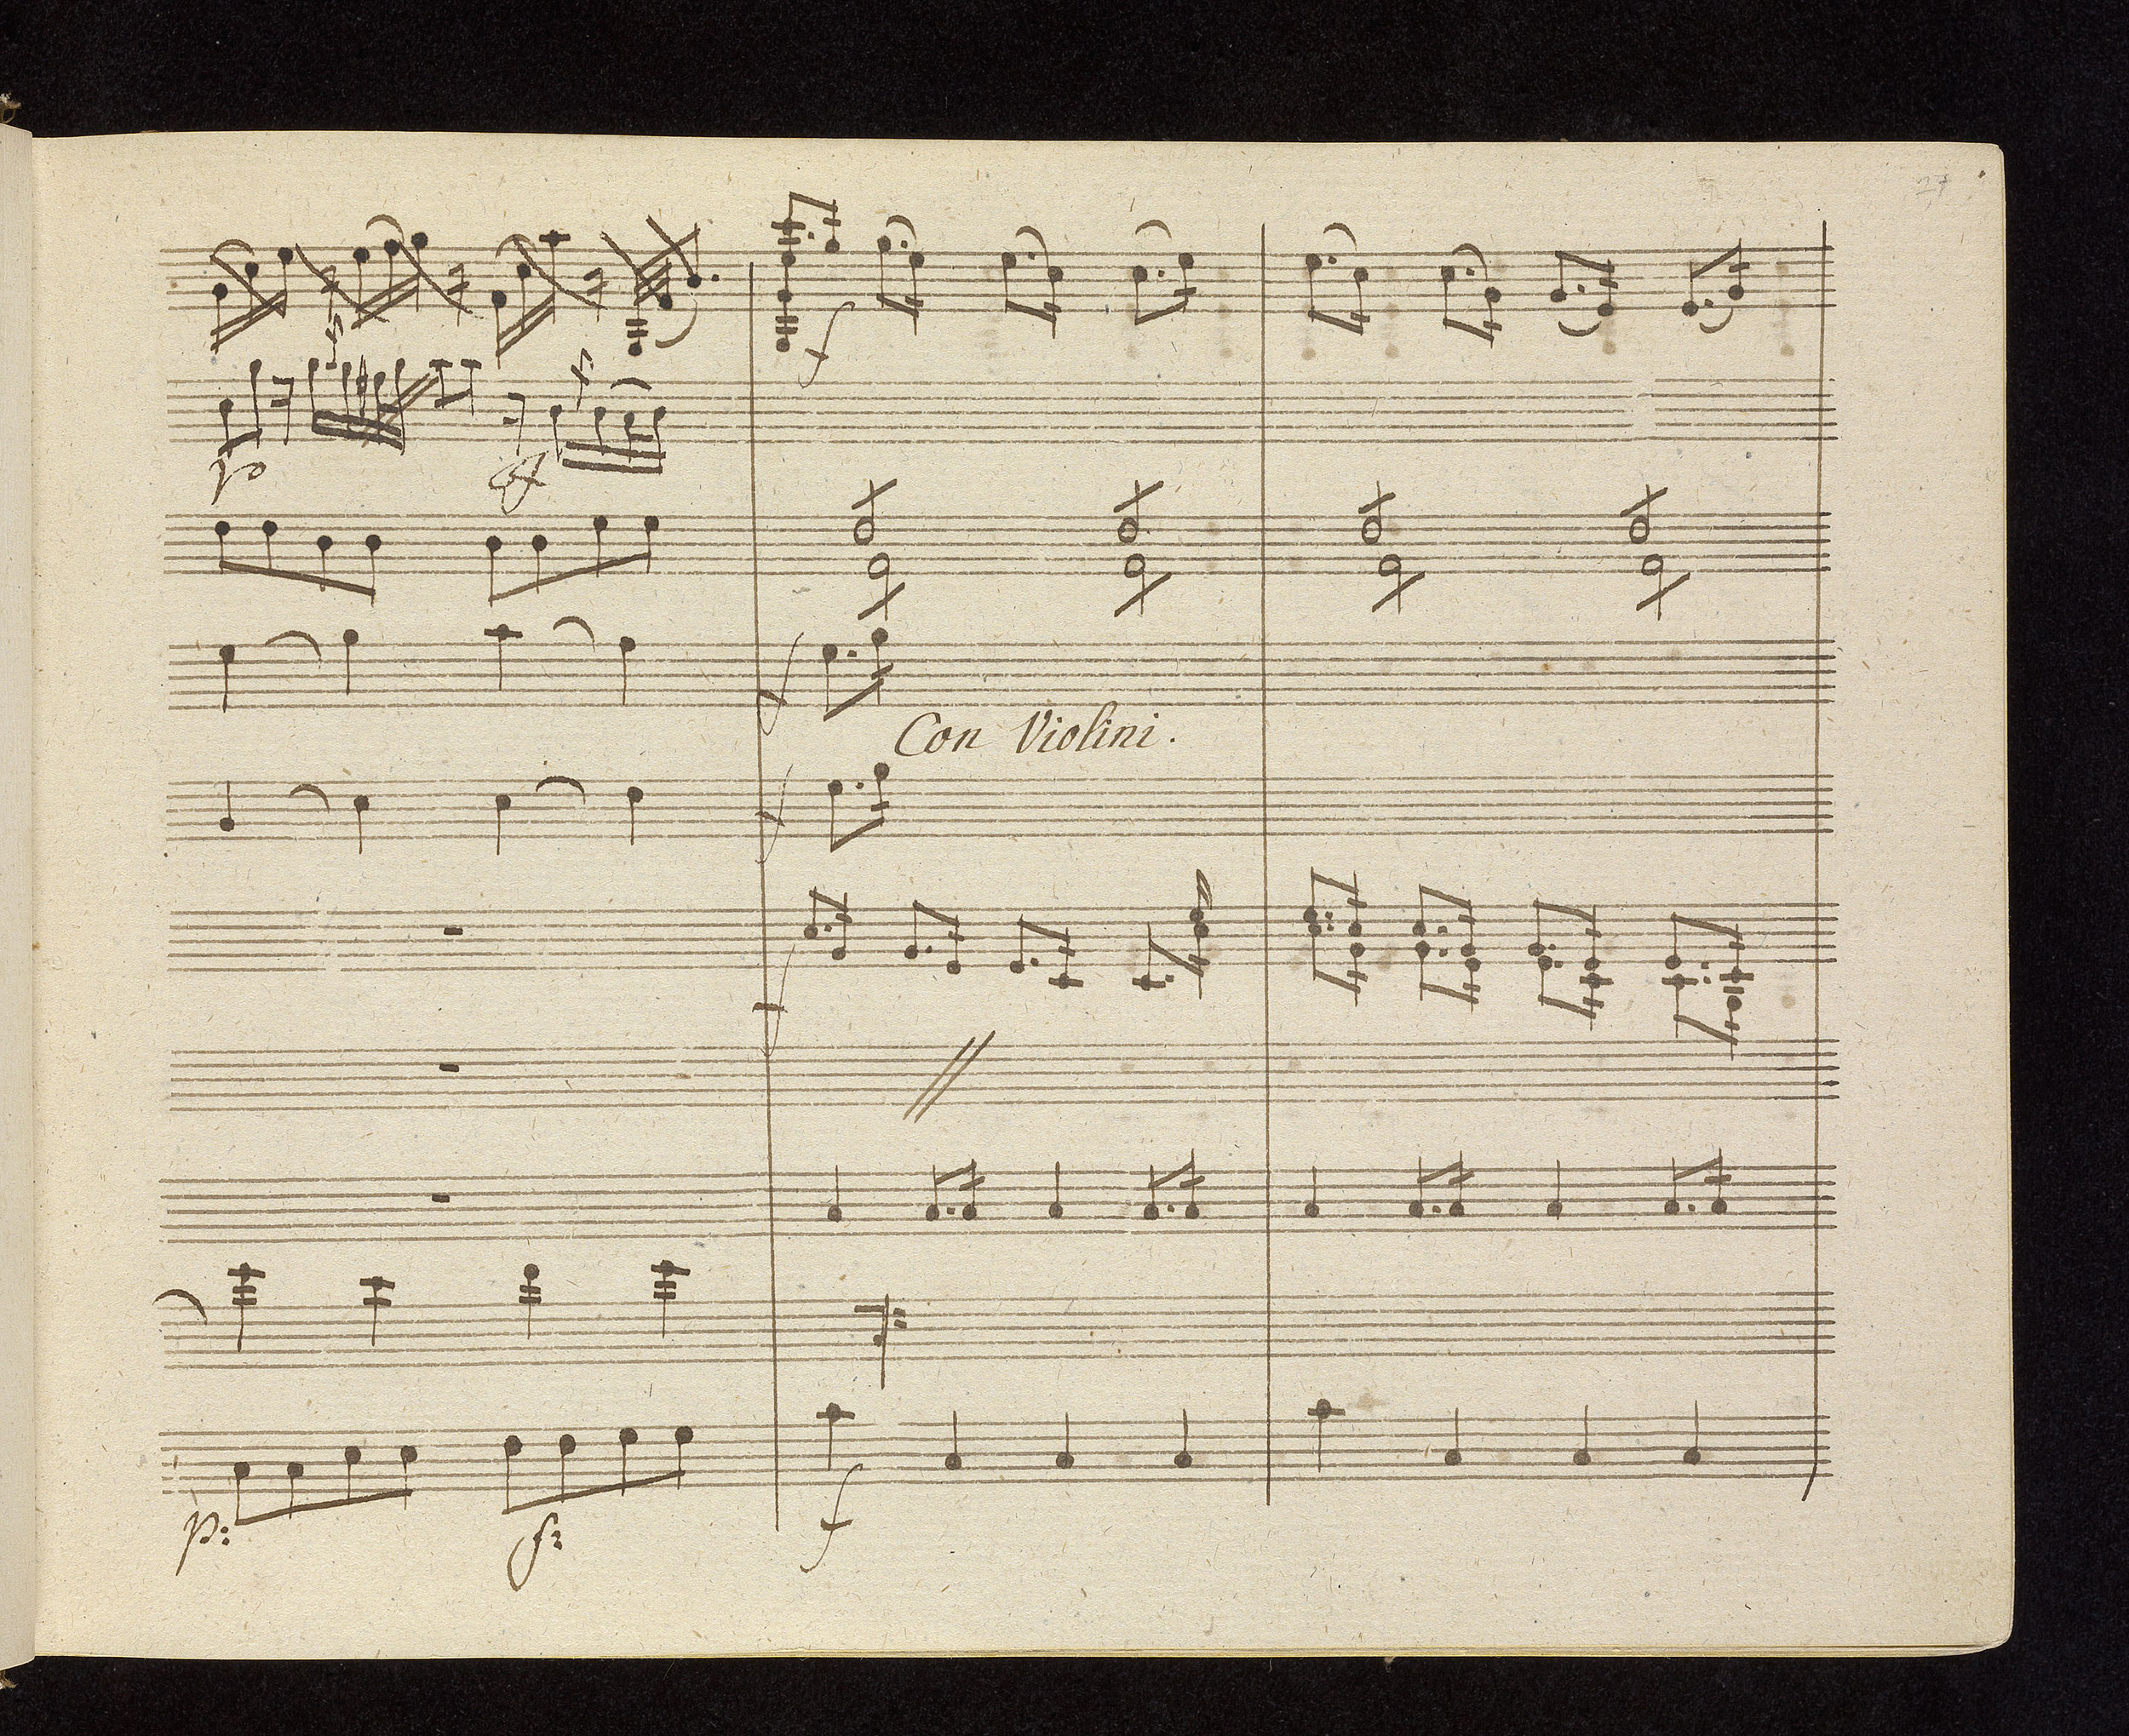 27
f
p
f
f
Con Violini.
f
f
p:
f:
f